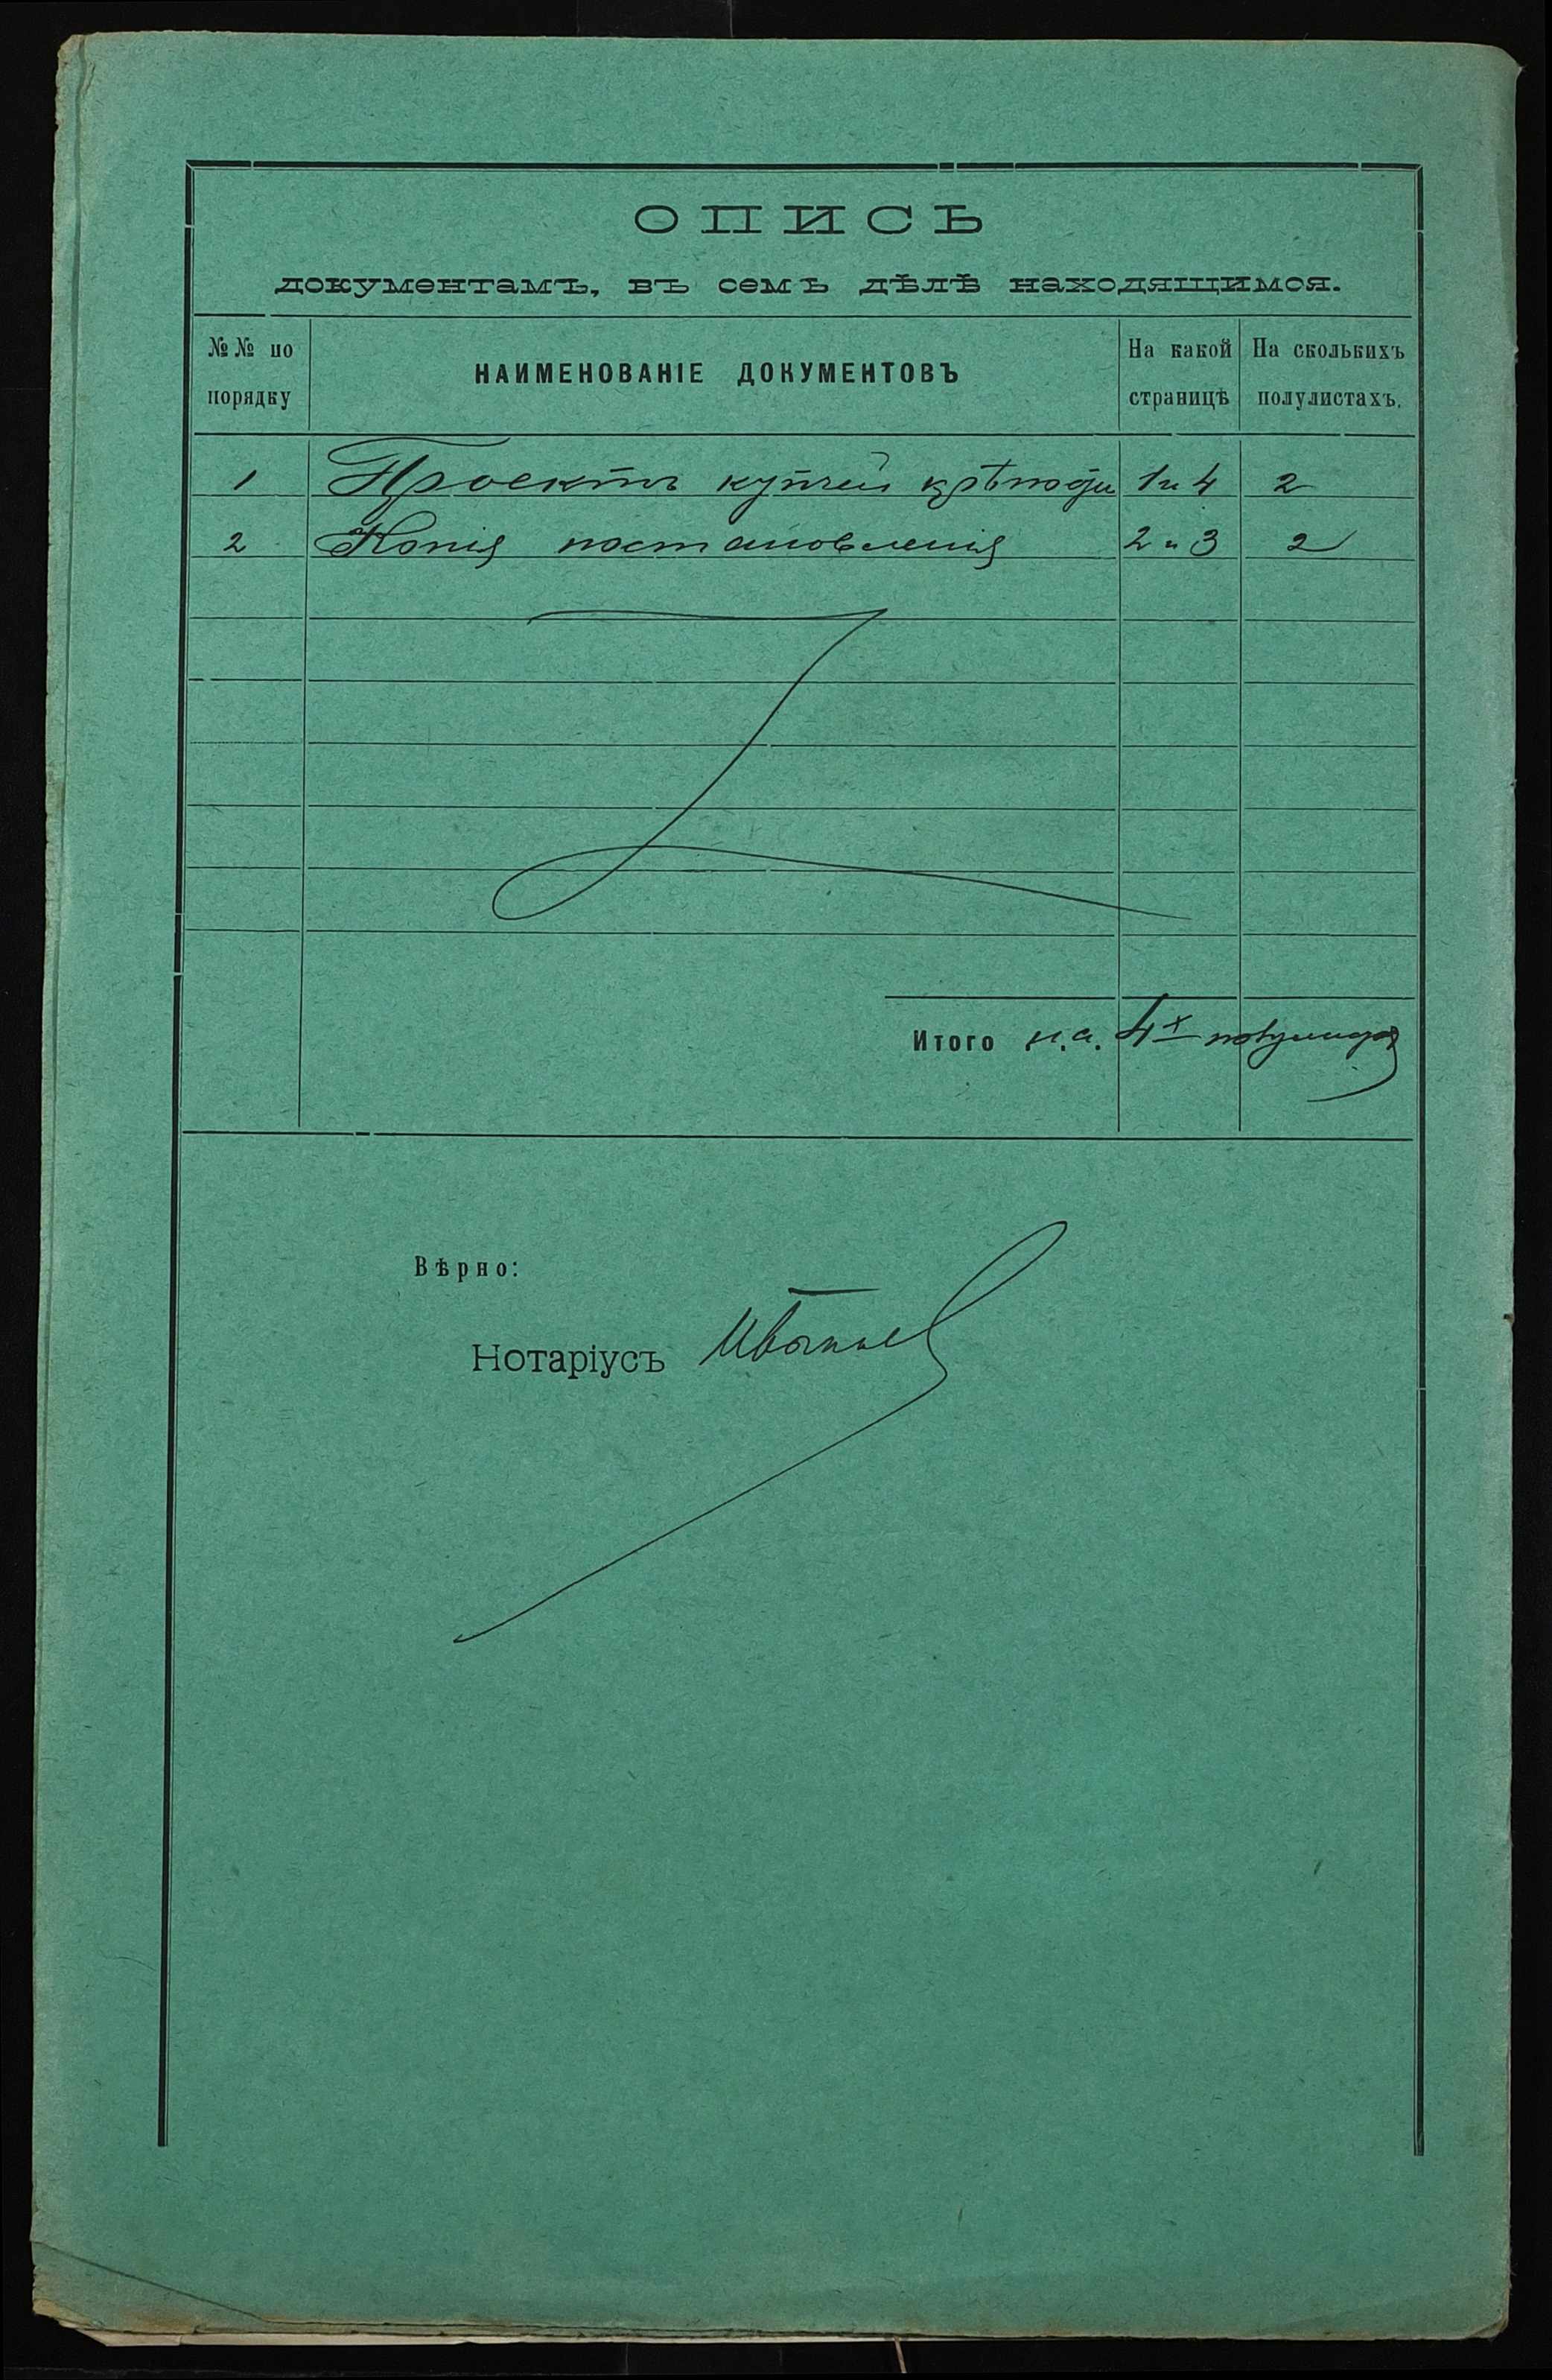 ОПИСЬ
документамъ, въ семъ дѣлѣ находящимся.
№№ по порядку
НАИМЕНОВАНІЕ ДОКУМЕНТОВЪ
На какой страницѣ
На сколькихъ полулистахъ.
1 Проектъ купчей крѣпости 1 и 4 2
2 Копія постановленія 2 и 3 2
Итого на 4х полулистах
Вѣрно:
Нотаріусъ